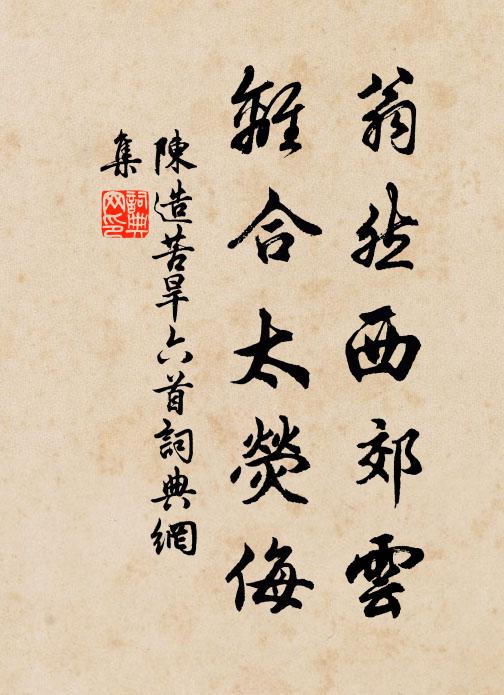 翁然西郊雲
離合太熒侮
陳造苦旱六首詞典網
集
詞典
網印